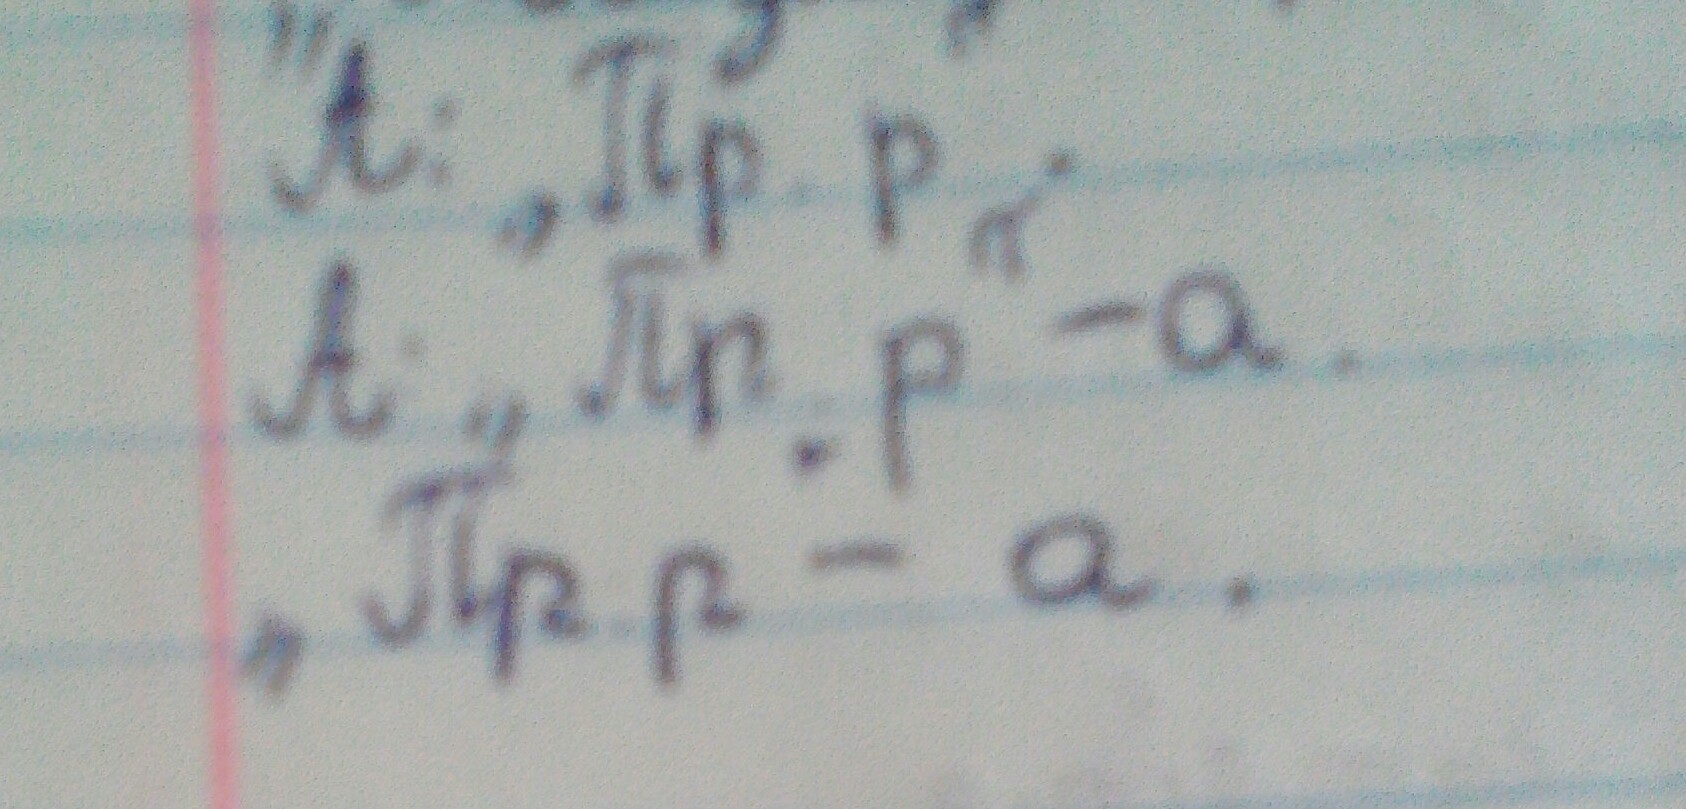 А: „Пр. р“.
А: „Пр. р – а.
„Пр р – а.